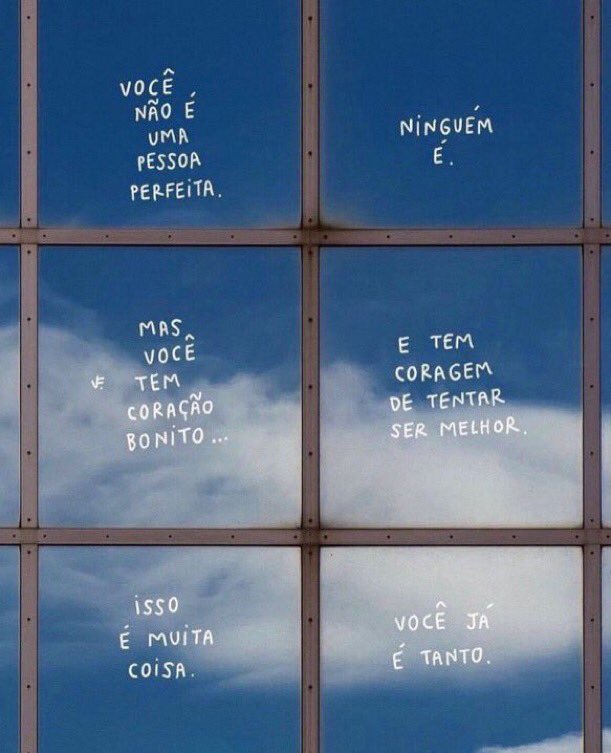 VOCÊ
NÃO É
UMA
PESSOA
PERFEITA.
NINGUÉM
É.
MAS
VOCÊ
TEM
CORAÇÃO
BONITO...
E TEM
CORAGEM
DE TENTAR
SER MELHOR.
ISSO
É MUITA
COISA.
VOCÊ JÁ
É TANTO.